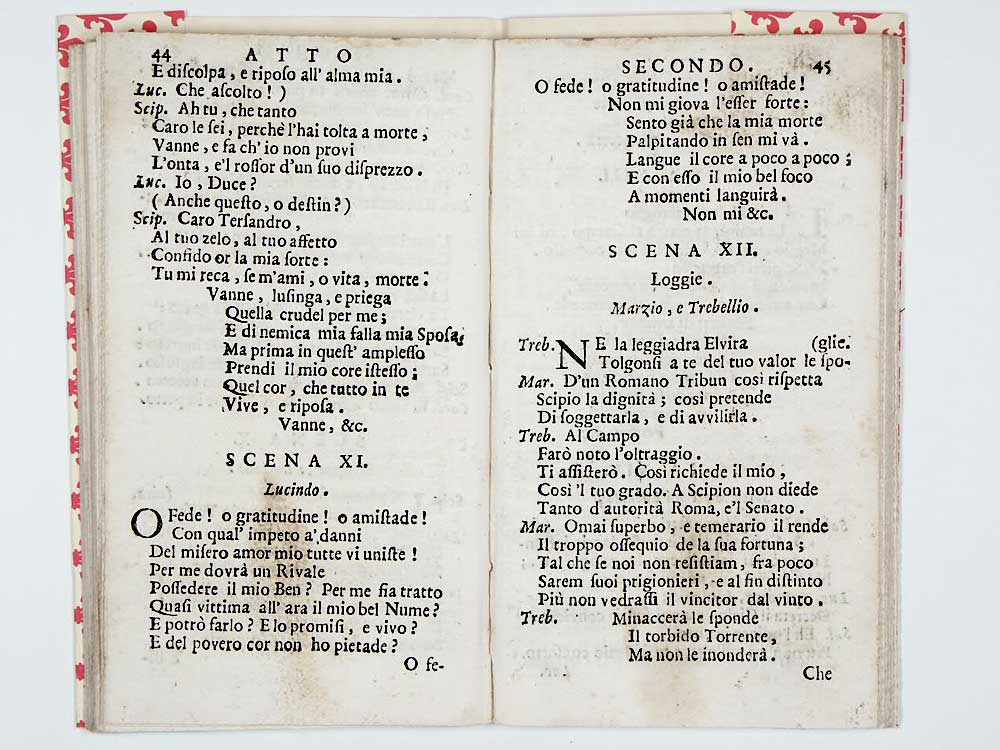 44 ATTO
E discolpa, e riposo all' alma mia.
Luc. Che ascolto! )
Scip. Ah tu, che tanto
Caro le sei, perchè l'hai tolta a morte,
Vanne, e fa ch' io non provi
L'onta, e'l rossor d'un suo disprezzo.
Luc. Io, Duce?
( Anche questo, o destin? )
Scip. Caro Tersandro,
Al tuo zelo, al tuo affetto
Confido or la mia sorte:
Tu mi reca, se m'ami, o vita, morte.
Vanne, lusinga, e priega
Quella crudel per me;
E di nemica mia falla mia Sposa,
Ma prima in quest' amplesso
Prendi il mio core istesso;
Quel cor, che tutto in te
Vive, e riposa.
Vanne, &c.
SCENA XI.
Lucindo.
O Fede! o gratitudine! o amistade!
Con qual' impeto a' danni
Del misero amor mio tutte vi uniste!
Per me dovrà un Rivale
Possedere il mio Ben? Per me sia tratto
Quasi vittima all' ara il mio bel Nume?
E potrò farlo? E lo promisi, e vivo?
E del povero cor non ho pietade?
O fe-
SECONDO. 45
O fede! o gratitudine! o amistade!
Non mi giova l'esser forte:
Sento già che la mia morte
Palpitando in sen mi và.
Langue il core a poco a poco;
E con esso il mio bel foco
A momenti languirà.
Non mi &c.
SCENA XII.
Loggie.
Marzio, e Trebellio.
Treb. NE la leggiadra Elvira (glie.
Tolgonsi a te del tuo valor le spo-
Mar. D'un Romano Tribun così rispetta
Scipio la dignità; così pretende
Di soggettarla, e di avvilirla.
Treb. Al Campo
Farò noto l'oltraggio.
Ti assisterò. Così richiede il mio,
Così 'l tuo grado. A Scipion non diede
Tanto d'autorità Roma, e'l Senato.
Mar. Omai superbo, e temerario il rende
Il troppo ossequio de la sua fortuna;
Tal che se noi non resistiam, fra poco
Sarem suoi prigionieri, e al fin distinto
Più non vedrassi il vincitor dal vinto.
Treb. Minaccerà le sponde
Il torbido Torrente,
Ma non le inonderà.
Che